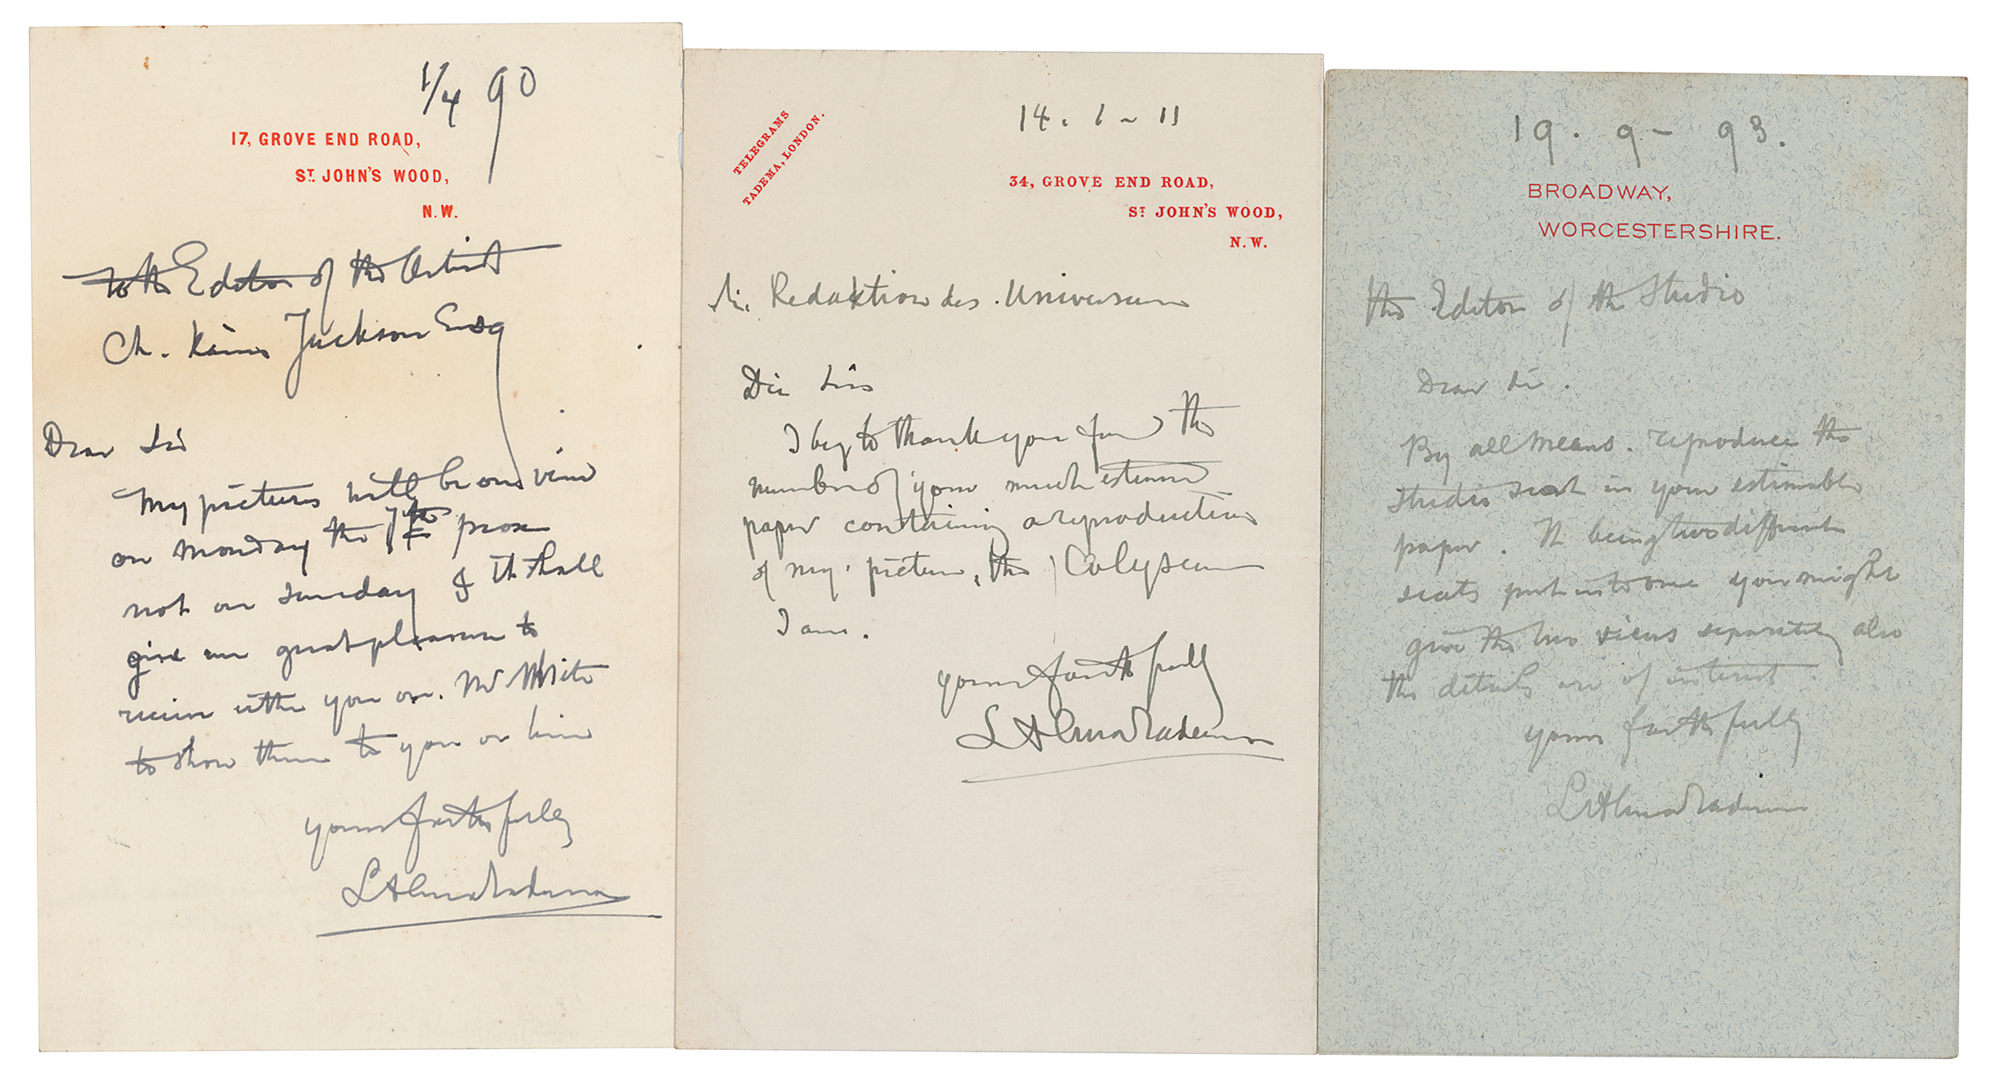 1/4 90
17, GROVE END ROAD,
ST. JOHN'S WOOD,
N.W.
to the Editor of the Artist
Ch. Kains Jackson Esq
Dear Sir
My pictures will be on view
on Monday the 7th prox
not on Sunday & it shall
give me great pleasure to
receive either you or Mr White
to show them to you or him
yours faithfully
L Alma Tadema
TELEGRAMS
TADEMA, LONDON.
14. 1 - 11
34, GROVE END ROAD,
ST. JOHN'S WOOD,
N.W.
Die Redaktion des Universum
Dear Sirs
I beg to thank you for the
number of your much esteemed
paper containing a reproduction
of my picture, the Colyseum
I am.
yours faithfully
L Alma Tadema
19. 9 - 93.
BROADWAY,
WORCESTERSHIRE.
the Editor of the Studio
Dear Sir.
By all means. reproduce the
studio seat in your estimable
paper. It being two different
seats put into one you might
give the two views separately also
the details are of interest.
yours faithfully
L Alma Tadema